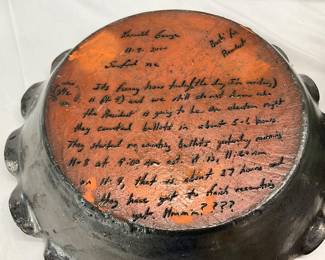 11-9-2000
Sanford NC
Bush for
President
Its funny how
and we still do not know who
the President is going to be. On election night
they counted ballots in about 5-6 hours.
They started recounting ballots yesterday morning
11-8 at 9:00 am est it is, 11:20 am
on 11-9, that is about 27 hours and
they have yet to finish recounting
yet. Hmmm????